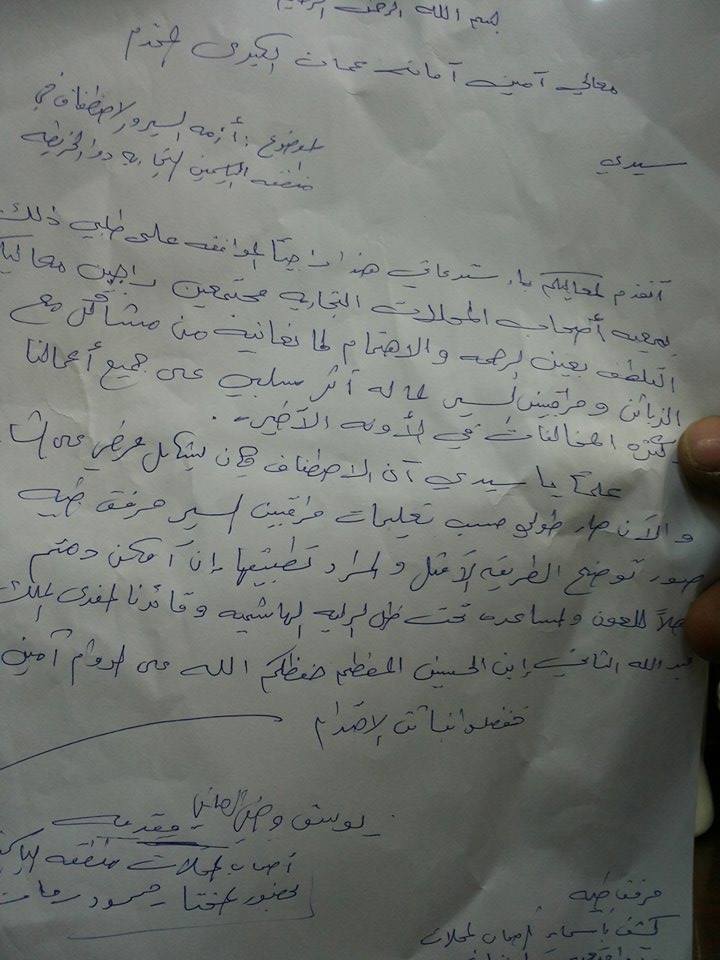 بسم الله الرحمن الرحيم
معالي آمين آمانت عمان الكبرى المحترم
الموضوع : أزمه السير والاصطفاف في
منطقه الياسمين التجاريه دوار الخريطه
سيدي
أتقدم لمعاليكم باستدعائي هذا راجياً الموافقه على طلبي ذلك
بمعيه أصحاب المحلات التجاريه مجتمعين راجين معاليكم
التلطف بعين الرحمه والاهتمام لما نعانيه من مشاكل مع
الزبائن ومراقبين السير لما له آثر سلبي على جميع أعمالنا
وكثره المخالفات في الأونه الآخيره .
علماً يا سيدي آن الاصطفاف كان بشكل عرضي على
والآن صار طولي حسب تعليمات مراقبين السير مرفق طيه
صور توضح الطريقه الآمثل والمراد تطبيقها إن آمكن دمتم
آهلاً للعون ولمساعده تحت ظل الرايه الهاشميه وقائدنا المفدى الملك
عبد الله الثاني إبن الحسين المعظم حفظكم الله على الدوام آمين
تفضلوا فائق الإحترام
يوسف
مقدمه
أصحاب محلات منطقه
بحضور المختار محمود
مرفق طيه
كشف بآسماء أصحاب المحلات